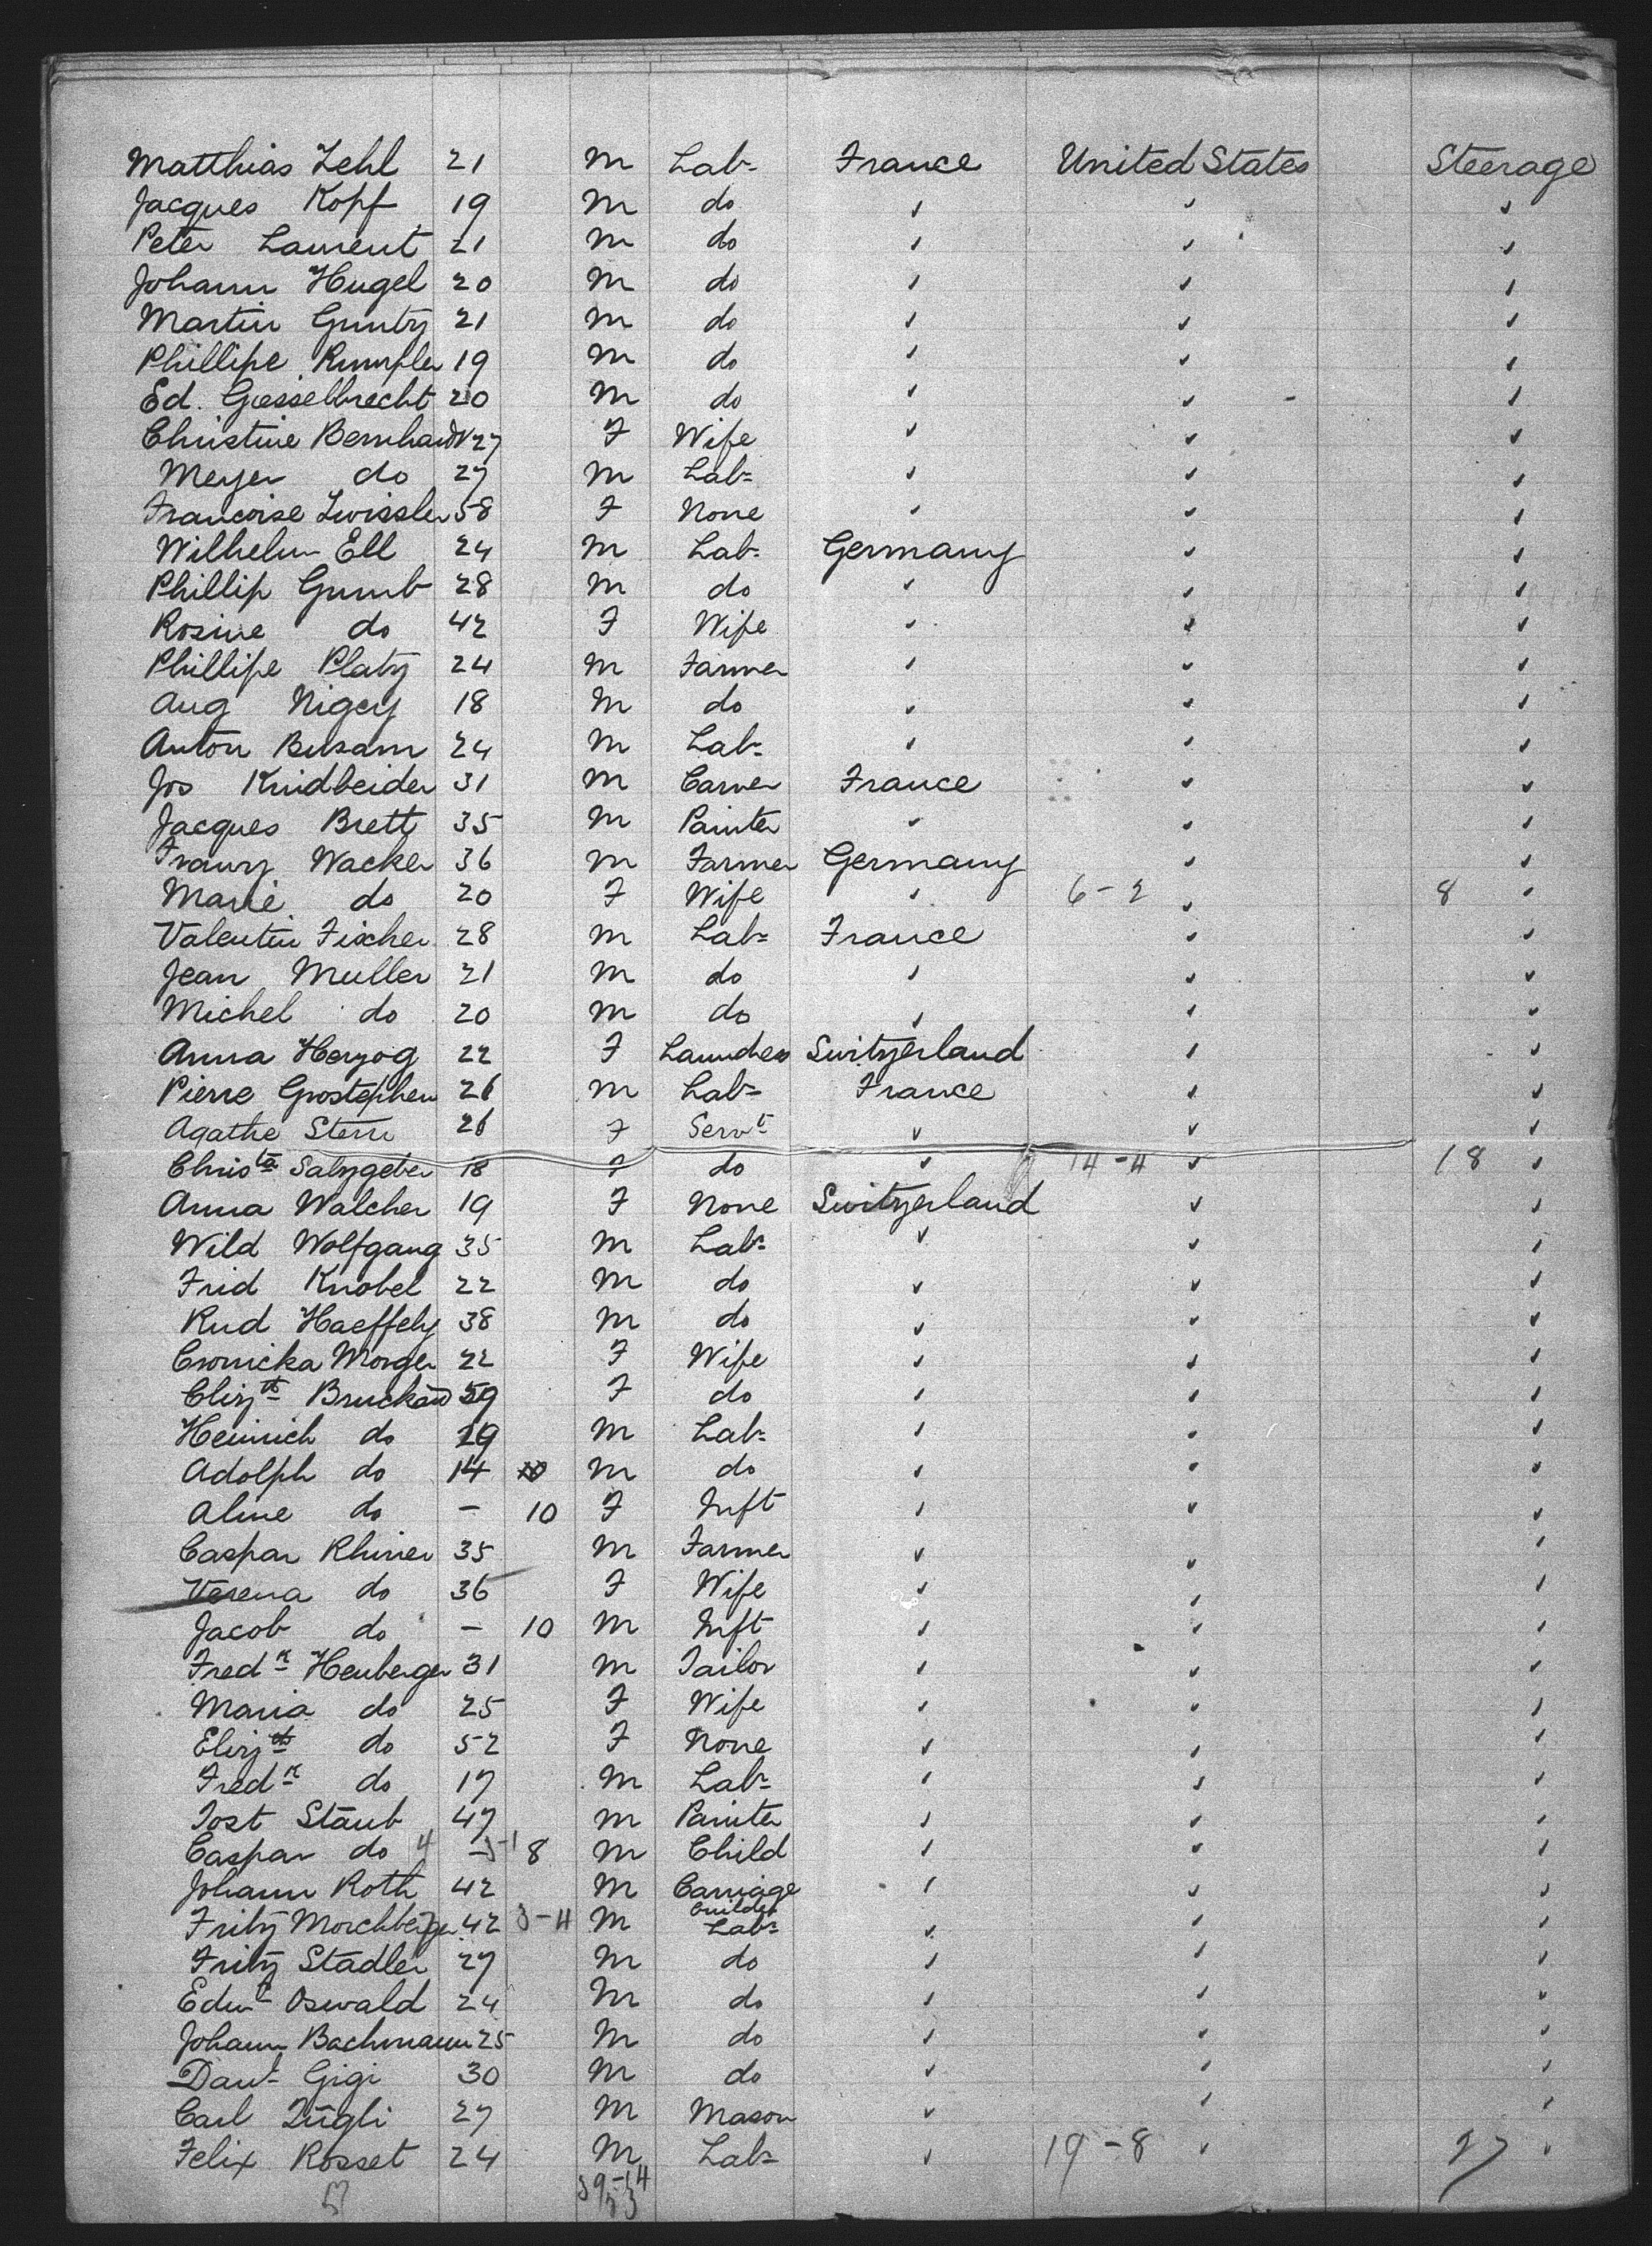 Matthias Zehl 21 M Labr France United States Steerage
Jacques Kopf 19 M do ✓ ✓ ✓
Peter Laurent 21 M do ✓ ✓ ✓
Johann Hugel 20 M do ✓ ✓ ✓
Martin Guntz 21 M do ✓ ✓ ✓
Phillipe Rumpler 19 M do ✓ ✓ ✓
Ed. Gosselbrecht 20 M do ✓ ✓ ✓
Christine Bernhard 27 F Wife ✓ ✓ ✓
Meyer do 27 M Labr ✓ ✓ ✓
Francoise Zwissler 58 F None ✓ ✓ ✓
Wilhelm Ell 24 M Labr Germany ✓ ✓
Phillip Gumb 28 M do ✓ ✓ ✓
Rosine do 42 F Wife ✓ ✓ ✓
Phillipe Platz 24 M Farmer ✓ ✓ ✓
Aug Nigey 18 M do ✓ ✓ ✓
Anton Busam 24 M Labr ✓ ✓ ✓
Jos Knidbeider 31 M Carver France ✓ ✓
Jacques Brett 35 M Painter ✓ ✓ ✓
Franz Wacker 36 M Farmer Germany ✓ ✓
Marie do 20 F Wife ✓ 6-2 ✓ 8 ✓
Valentin Fischer 28 M Labr France ✓ ✓
Jean Muller 21 M do ✓ ✓ ✓
Michel do 20 M do ✓ ✓ ✓
Anna Herzog 22 F Laundress Switzerland ✓ ✓
Pierre Grostephen 26 M Labr France ✓ ✓
Agathe Stern 26 F Servt ✓ ✓ ✓
Christa Salzgeber 18 F do ✓ 14-4 ✓ 18 ✓
Anna Walcher 19 F None Switzerland ✓ ✓
Wild Wolfgang 35 M Labr ✓ ✓ ✓
Frid Knobel 22 M do ✓ ✓ ✓
Rud Haeffely 38 M do ✓ ✓ ✓
Cronicka Morger 22 F Wife ✓ ✓ ✓
Elizth 59 F do ✓ ✓ ✓
Heinrich do 29 M Labr ✓ ✓ ✓
Adolph do 14 M do ✓ ✓ ✓
Aline do - 10 F Inft ✓ ✓ ✓
Caspar Rhiner 35 M Farmer ✓ ✓ ✓
Verena do 36 F Wife ✓ ✓ ✓
Jacob do - 10 M Inft ✓ ✓ ✓
Fredk Heuberger 31 M Tailor ✓ ✓ ✓
Maria do 25 F Wife ✓ ✓ ✓
Elizth do 52 F None ✓ ✓ ✓
Fredk do 17 M Labr ✓ ✓ ✓
Jost Staub 47 M Painter ✓ ✓ ✓
Caspar do 4 8 M Child ✓ ✓ ✓
Johann Roth 42 M Carriage builder ✓ ✓ ✓
Fritz Morchberger 42 3-4 M Labr ✓ ✓ ✓
Fritz Stadler 27 M do ✓ ✓ ✓
Edwd Oswald 24 M do ✓ ✓ ✓
Johann Bachmann 25 M do ✓ ✓ ✓
Danl Gigi 30 M do ✓ ✓ ✓
Carl Zügli 27 M Mason ✓ ✓ ✓
Felix Rosset 24 M Labr ✓ 19-8 ✓ 27 ✓
39-14
53